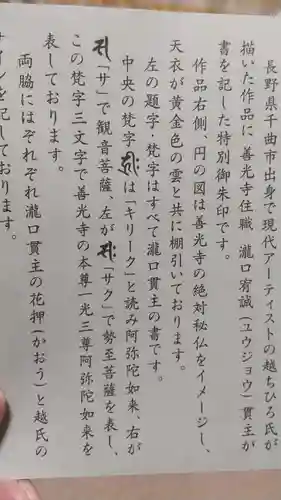 長野県千曲市出身で現代アーティストの越ちひろ氏が
描いた作品に、善光寺住職 瀧口宥誠(ユウジョウ)貫主が
書を記した特別御朱印です。
作品右側、円の図は善光寺の絶対秘仏をイメージし、
天衣が黄金色の雲と共に棚引いております。
左の題字・梵字はすべて瀧口貫主の書です。
中央の梵字 ह्रीः は「キリーク」と読み阿弥陀如来、右が
स「サ」で観音菩薩、左が सः「サク」で勢至菩薩を表し、
この梵字三文字で善光寺の本尊一光三尊阿弥陀如来を
表しております。
両脇にはそれぞれ瀧口貫主の花押(かおう)と越氏の
サインを記しております。